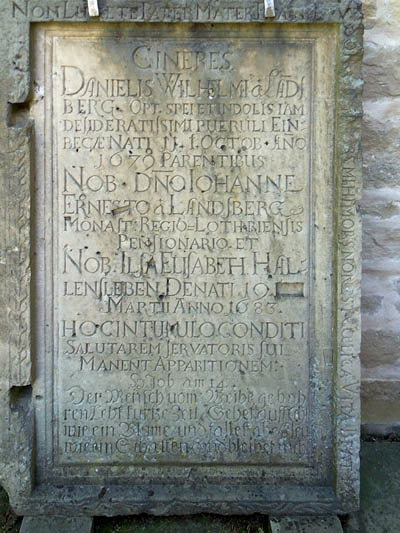 NON LUGETE PATER MATER
CINERES
DANIELIS WILHELMI à LADS
BERG · OPT· SPEI ET INDOLIS IAM
DESIDERATISSIMI PUERULI EIN
BECÆ NATI 11. OCTOB· AÑO
1679 PARENTIBUS
NOB· DÑO IOHANNE
ERNESTO à LANDSBERG
MONAST: REGIO=LOTHARIENSIS
PENSIONARIO· ET
NOB· ILSA ELISABETH HAL=
LENSLEBEN· DENATI 19
MARTII ANNO 1683·
HOC IN TUMULO CONDITI
SALUTAREM SERVATORIS SUI
MANENT APPARITIONEM·
Job am 14·
Der Mensch vom Weibe geboh
ren Lebt kurtze Zeit, Gehet auff
wie ein Blume und fället abe
wie ein Schatten und bleibet nit